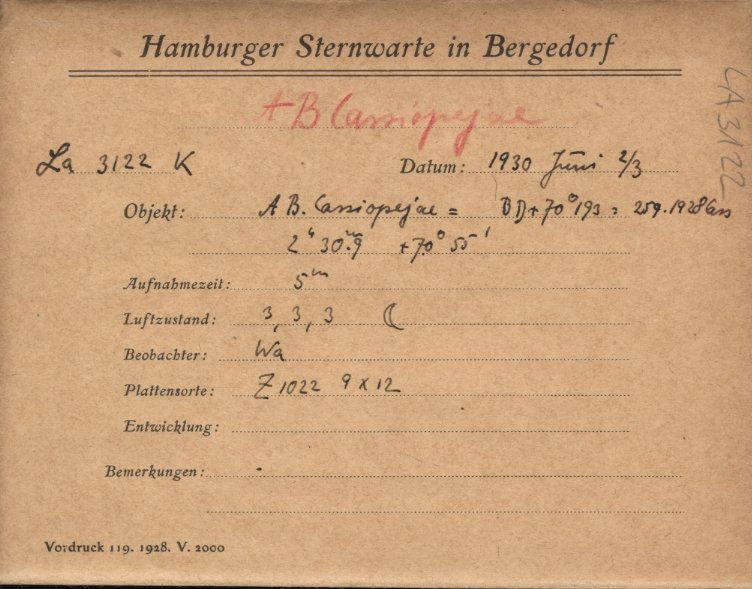 Hamburger Sternwarte in Bergedorf
AB Cassiopejae
LA 3122
La 3122 K Datum: 1930 Juni 2/3
Objekt: AB. Cassiopejae = BD+70°193 = 259.1928 Cass
2ʰ 30ᵐ.9 +70° 55'
Aufnahmezeit: 5ᵐ
Luftzustand: 3, 3, 3 ☾
Beobachter: Wa
Plattensorte: Z 1022 9 x 12
Entwicklung:
Bemerkungen:
Vordruck 119. 1928. V. 2000